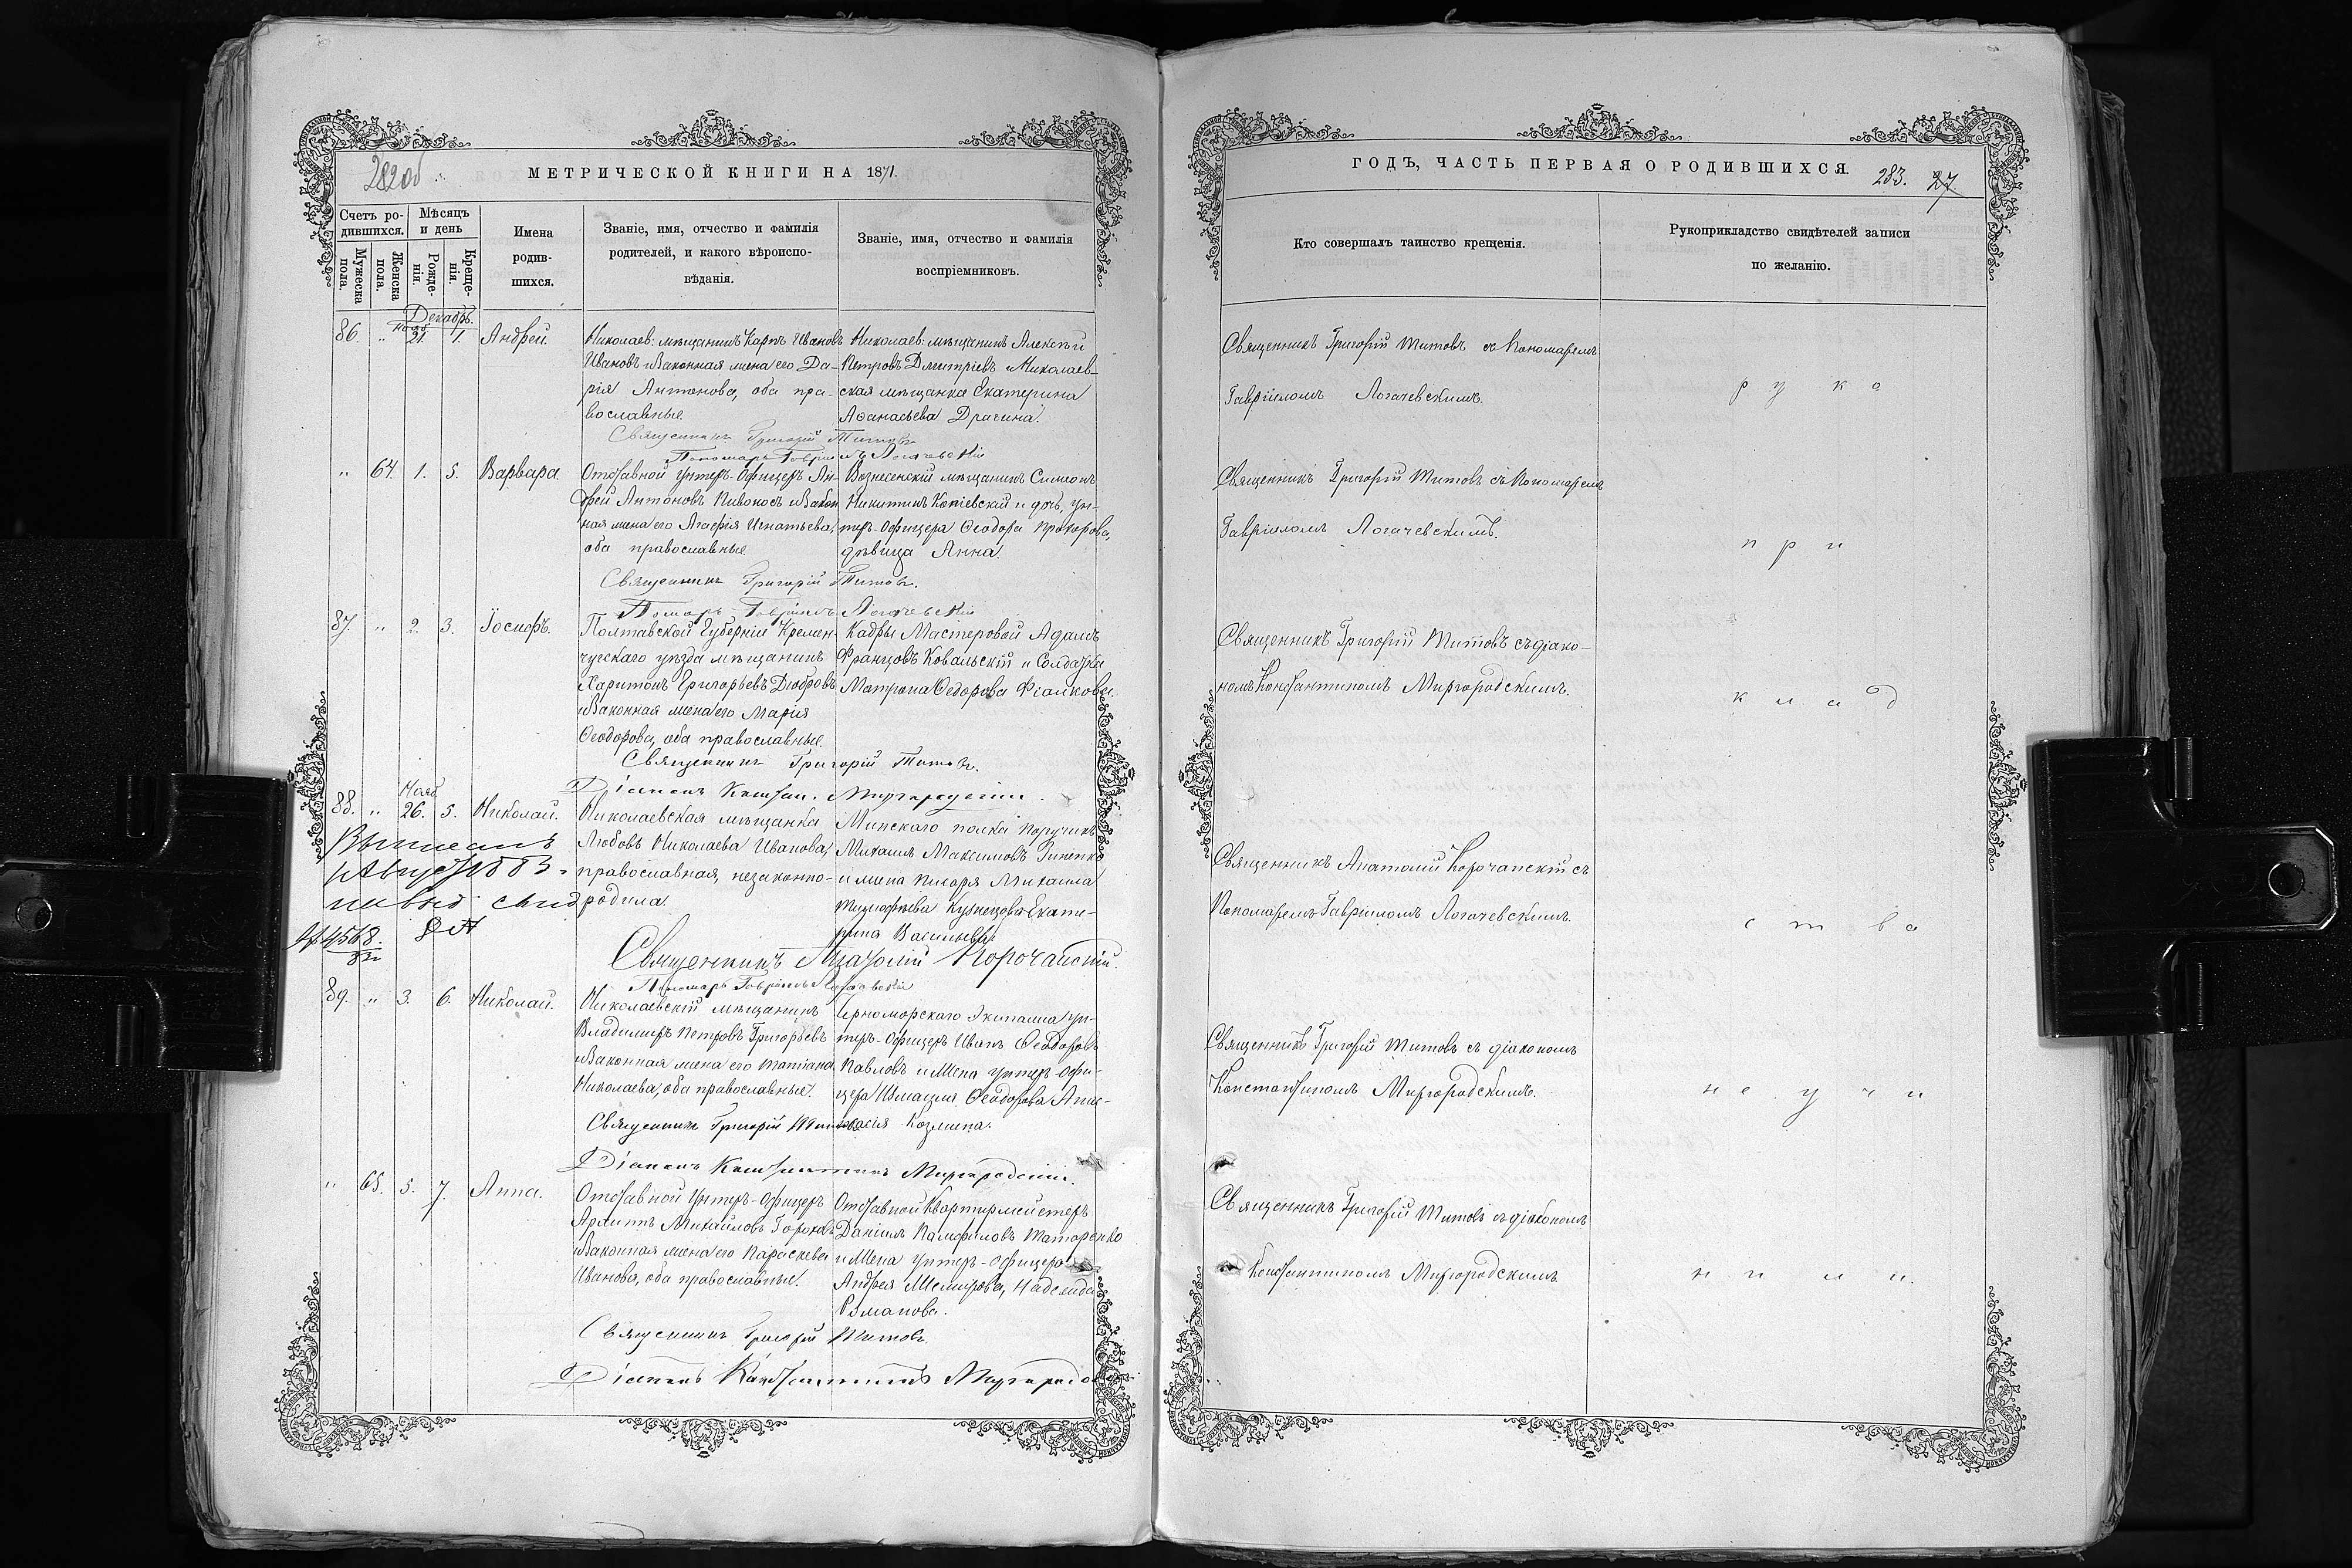 282об
МЕТРИЧЕСКОЙ КНИГИ НА 1871.
Счетъ ро-
дившихся.
Мѣсяцъ
и день
Мужеска
пола.
Женска
пола.
Рожде-
нія.
Креще-
нія.
Имена
родив-
шихся.
Званіе, имя, отчество и фамилія
родителей, и какого вѣроиспо-
вѣданія.
Званіе, имя, отчество и фамилія
воспріемниковъ.
Декабрь.
86. " Нояб 21. 1. Андрей.
Николаев: мѣщанинъ Карпъ Ивановъ
Ивановъ и Законная жена его Да-
рія Антонова, оба пра-
вославные
Николаев: мѣщанинъ Алексѣй
Петровъ Дмитріевъ и Николаев-
ская мѣщанка Екатерина
Аѳанасьева Драгина.
Священникъ Григорій Титовъ
Пономарь Гавріилъ Логачевскій
" 64. 1. 5. Варвара.
Отставной Унтеръ-Офицеръ Ан-
дрей Антоновъ Пивоносъ и Закон
ная жена его Агафія Игнатьева,
оба православные
Вознесенскій мѣщанинъ Симеонъ
Никитинъ Копіевскій и дочь, ун-
теръ-Офицера Ѳеодора Прохорова,
дѣвица Анна.
Священникъ Григорій Титовъ.
Помарь Гавріилъ Логачевскій
87. " 2. 3. Іосифъ.
Полтавской Губерніи Кремен-
чугскаго уѣзда мѣщанинъ
Харитонъ Григорьевъ Дюбровъ
и Законная жена его Марія
Ѳеодорова, оба православные.
Кадры Мастеровой Адамъ
Францовъ Ковальскій и Солдатка
Матрона Ѳедорова Фіалкова.
Священникъ Григорій Титовъ.
Діаконъ Констан. Миргородскій
88. " Нояб 26. 5. Николай.
Николаевская мѣщанка
Любовь Николаева Иванова,
православная, незаконно-
родила.
Минскаго полка Поручикъ
Михаилъ Максимовъ Зиненко
и жена писаря Михаила
Тимофѣева Кузнецова Екате-
рина Васильева
1883
№ 4568.
Священникъ Анатолій Корочанскій.
Пономарь Гавріилъ Логачевскій
89. " 3. 6. Николай.
Николаевскій мѣщанинъ
Владимиръ Петровъ Григорьевъ
и Законная жена его Татіана
Николаева, оба православные.
Черноморскаго Экипажа ун-
теръ-Офицеръ Иванъ Ѳеодоровъ
Павловъ и Жена унтеръ-Офи-
цера Измаила Ѳеодорова Анас-
тасія Козмина.
Священникъ Григорій Титовъ
Діаконъ Константинъ Миргородскій.
" 65. 5. 7. Анна.
Отставной Унтеръ-Офицеръ
Архипъ Михайловъ Гороховъ
и Законная жена его Параскева
Иванова, оба православные.
Отставной Квартирмейстеръ
Даніилъ Памфиловъ Татаренко
и Жена Унтеръ-Офицера
Андрея Надежда
Романова.
Священникъ Григорій Титовъ
Діаконъ Константинъ Миргородскій
ГОДЪ, ЧАСТЬ ПЕРВАЯ О РОДИВШИХСЯ.
283. 27.
Кто совершалъ таинство крещенія.
Рукоприкладство свидѣтелей записи
по желанію.
Священникъ Григорій Титовъ съ Пономаремъ
Гавріиломъ Логачевскимъ.
р у к о
Священникъ Григорій Титовъ съ Пономаремъ
Гавріиломъ Логачевскимъ.
п р и
Священникъ Григорій Титовъ съ діако-
номъ Константиномъ Миргородскимъ.
к л а д
Священникъ Анатолій Корочанскій съ
Пономаремъ Гавріиломъ Логачевскимъ.
с т в а
Священникъ Григорій Титовъ съ діакономъ
Константиномъ Миргородскимъ.
н е у ч и
Священникъ Григорій Титовъ съ діакономъ
Константиномъ Миргородскимъ
н и л и.